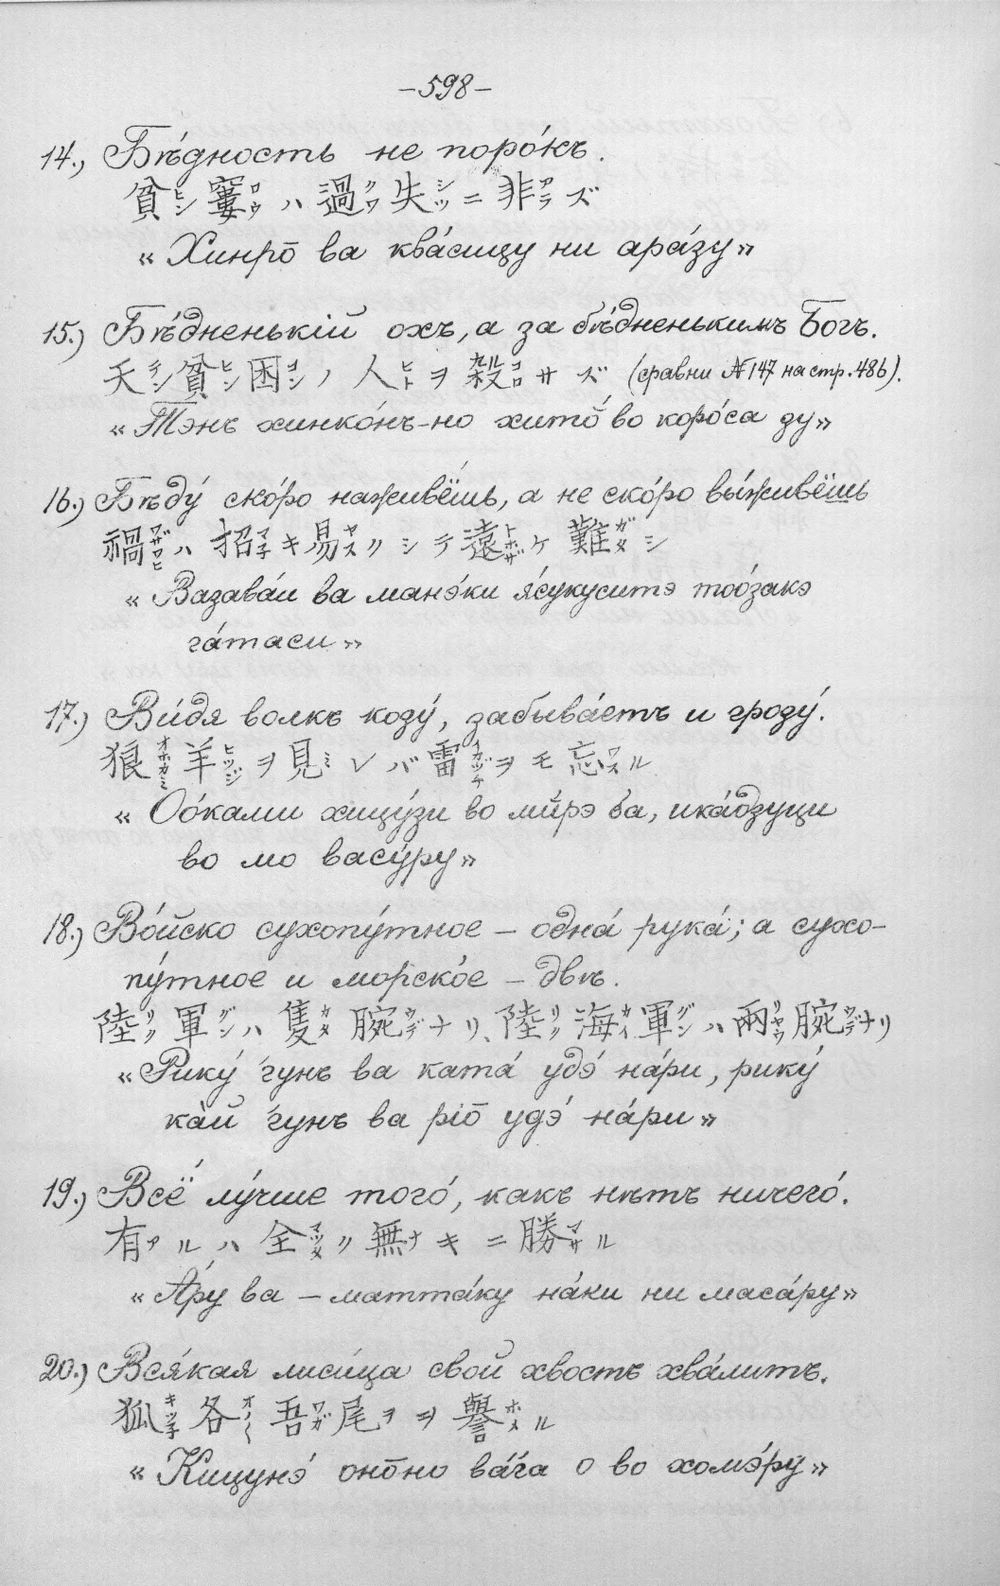 -598-
14.) Бѣ́дность не поро́къ.
貧ヒン窶ロウハ過クワ失シツニ非アラズ
« Хинро̄ ва ква́сицу ни ара́зу»
15.) Бѣ́дненькій охъ, а за бѣ́дненькимъ Богъ.
天テン貧ヒン困コンノ人ヒトヲ殺コロサズ (сравни №147 на стр. 486).
«Тэнъ хинко́нъ-но хито́ во коро́са зу»
16.) Бѣду́ ско́ро наживёшь, а не ско́ро вы́живёшь
禍ワザワヒハ招マネキ易ヤスクシテ遠トホザケ難ガタシ
« Вазава́и ва манэ́ки я́сукуситэ тоо́закэ
га́таси»
17.) Ви́дя волкъ козу́, забыва́етъ и грозу́.
狼オホカミ羊ヒツジヲ見ミレバ雷イカヅチヲモ忘ワスル
« Оо́ками хицу́зи во ми́рэ ба, ика́дзуци
во мо васу́ру»
18.) Во́йско сухопу́тное – одна́ рука́; а сухо-
пу́тное и морско́е – двѣ.
陸リク軍グンハ隻カタ腕ウデナリ、陸リク海カイ軍グンハ兩リヤウ腕ウデナリ
«Рику́ гунъ ва ката́ удэ́ на́ри, рику́
ка́й гунъ ва ріо̄ удэ́ на́ри»
19.) Всё лу́чше того́, какъ нѣтъ ничего́.
有アルハ全マツタク無ナキニ勝マサル
« А́ру ва – матта́ку на́ки ни маса́ру»
20.) Вся́кая лиси́ца свой хвостъ хва́литъ.
狐キツネ各オノ〱吾ワガ尾ヲヲ譽ホメル
« Кицунэ́ оно̄но ва́га о во хомэ́ру»